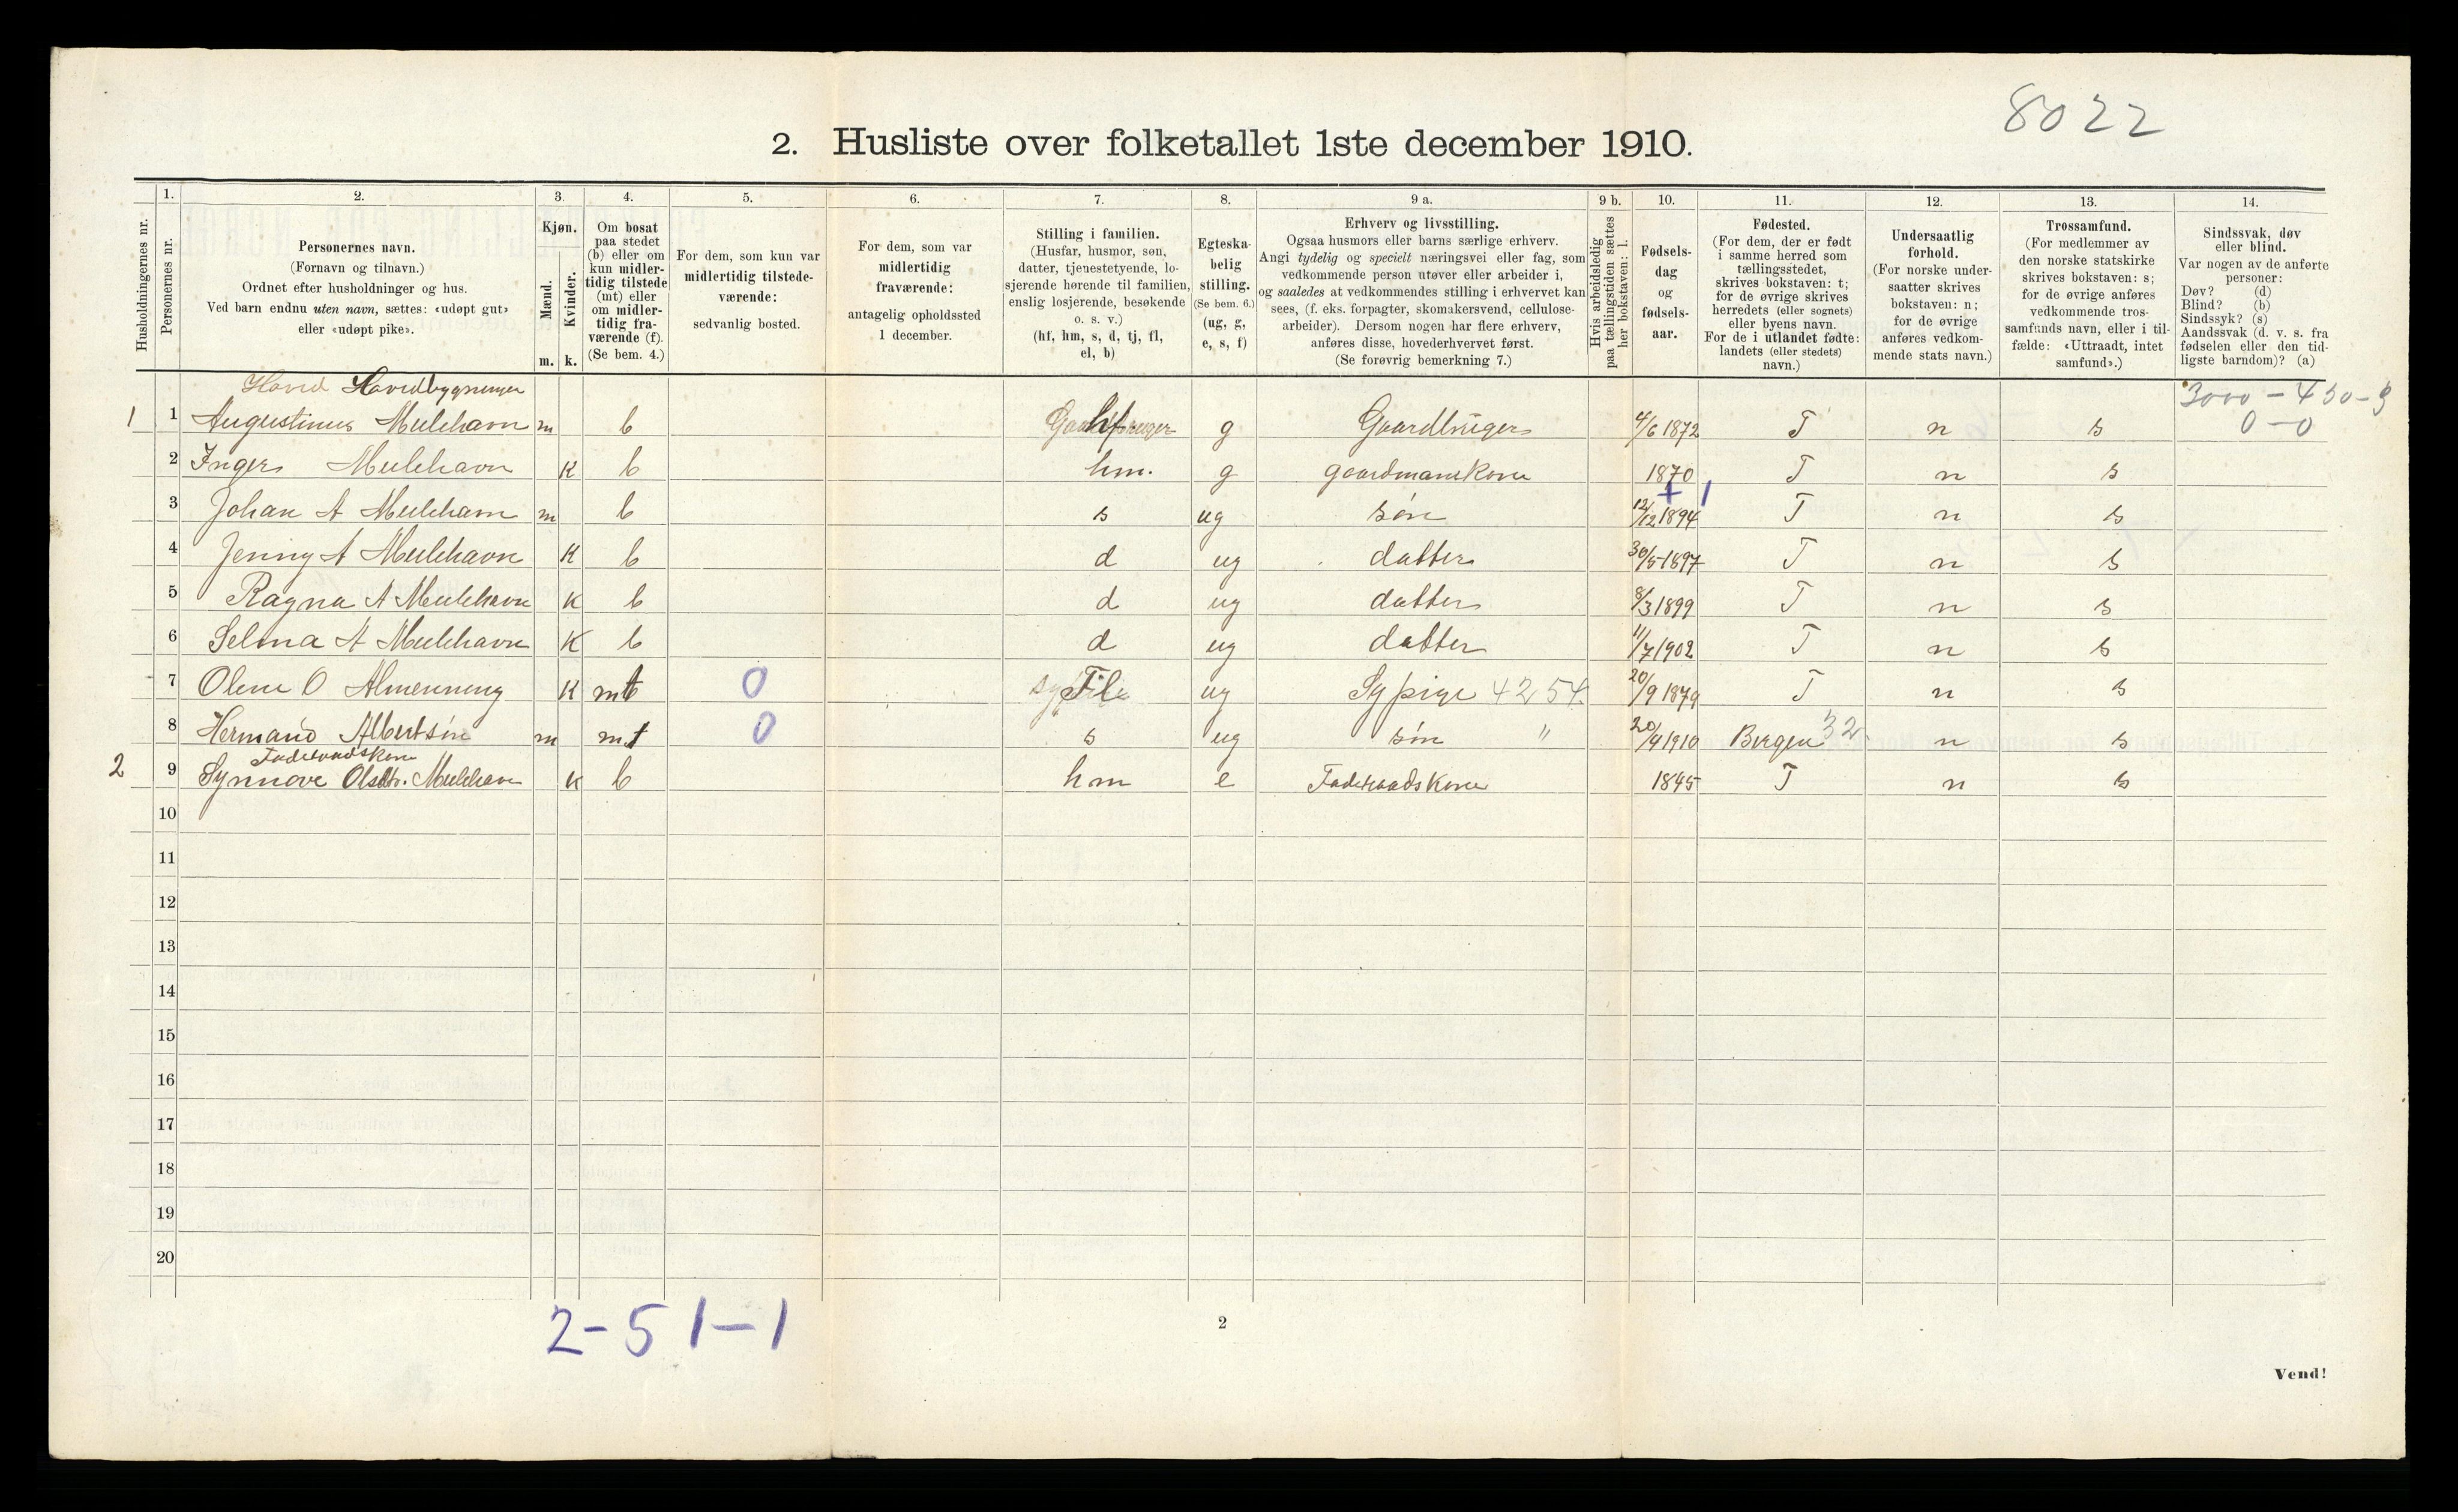 8022
2. Husliste over folketallet 1ste december 1910.
Husholdningernes nr.
1.
Personernes nr.
2.
Personernes navn.
(Fornavn og tilnavn.)
Ordnet efter husholdninger og hus.
Ved barn endnu uten navn, sættes: «udøpt gut»
eller «udøpt pike».
3.
Kjøn.
Mænd.
Kvinder.
m. k.
4.
Om bosat
paa stedet
(b) eller om
kun midler-
tidig tilstede
(mt) eller
om midler-
tidig fra-
værende (f).
(Se bem. 4.)
5.
For dem, som kun var
midlertidig tilstede-
værende:
sedvanlig bosted.
6.
For dem, som var
midlertidig
fraværende:
antagelig opholdssted
1 december.
7.
Stilling i familien.
(Husfar, husmor, søn,
datter, tjenestetyende, lo-
sjerende hørende til familien,
enslig losjerende, besøkende
o. s. v.)
(hf, hm, s, d, tj, fl,
el, b)
8.
Egteska-
belig
stilling.
(Se bem. 6.)
(ug, g,
e, s, f)
9 a.
Erhverv og livsstilling.
Ogsaa husmors eller barns særlige erhverv.
Angi tydelig og specielt næringsvei eller fag, som
vedkommende person utøver eller arbeider i,
og saaledes at vedkommendes stilling i erhvervet kan
sees, (f. eks. forpagter, skomakersvend, cellulose-
arbeider). Dersom nogen har flere erhverv,
anføres disse, hovederhvervet først.
(Se forøvrig bemerkning 7.)
9 b.
Hvis arbeidsledig
paa tællingstiden sættes
her bokstaven: l.
10.
Fødsels-
dag
og
fødsels-
aar.
11.
Fødested.
(For dem, der er født
i samme herred som
tællingsstedet,
skrives bokstaven: t;
for de øvrige skrives
herredets (eller sognets)
eller byens navn.
For de i utlandet fødte:
landets (eller stedets)
navn.)
12.
Undersaatlig
forhold.
(For norske under-
saatter skrives
bokstaven: n;
for de øvrige
anføres vedkom-
mende stats navn.)
13.
Trossamfund.
(For medlemmer av
den norske statskirke
skrives bokstaven: s;
for de øvrige anføres
vedkommende tros-
samfunds navn, eller i til-
fælde: «Uttraadt, intet
samfund».)
14.
Sindssvak, døv
eller blind.
Var nogen av de anførte
personer:
Døv? (d)
Blind? (b)
Sindssyk? (s)
Aandssvak (d. v. s. fra
fødselen eller den tid-
ligste barndom)? (a)
Hovedbygningen 3000 - 450 - 9
1 1 Augustinus Mulehavn m b hf g Gaardbruger 4/6 1872 T n s 0 - 0
2 Inger Mulehavn K b hm. g gaardmanskone 1870 T n s
3 Johan A Mulehavn m b s ug søn 12/12 1894 T n s
4 Jenny A Mulehavn K b d ug datter 30/5 1897 T n s
5 Ragna A Mulehavn K b d ug datter 8/3 1899 T n s
6 Selma A Mulehavn K b d ug datter 11/7 1902 T n s
7 Oline O Almenning K mt 0 ug Sypige 4254. 20/9 1879 T n s
8 Hermand Albertsøn m mt 0 s ug søn " 20/9 1910 Bergen 32. n s
Føderaadskone
2 9 Synnove Olsdtr. Mulehavn K b hm e Føderaadskone 1845 T n s
10
11
12
13
14
15
16
17
18
19
20
2-5 1-1
2
Vend!